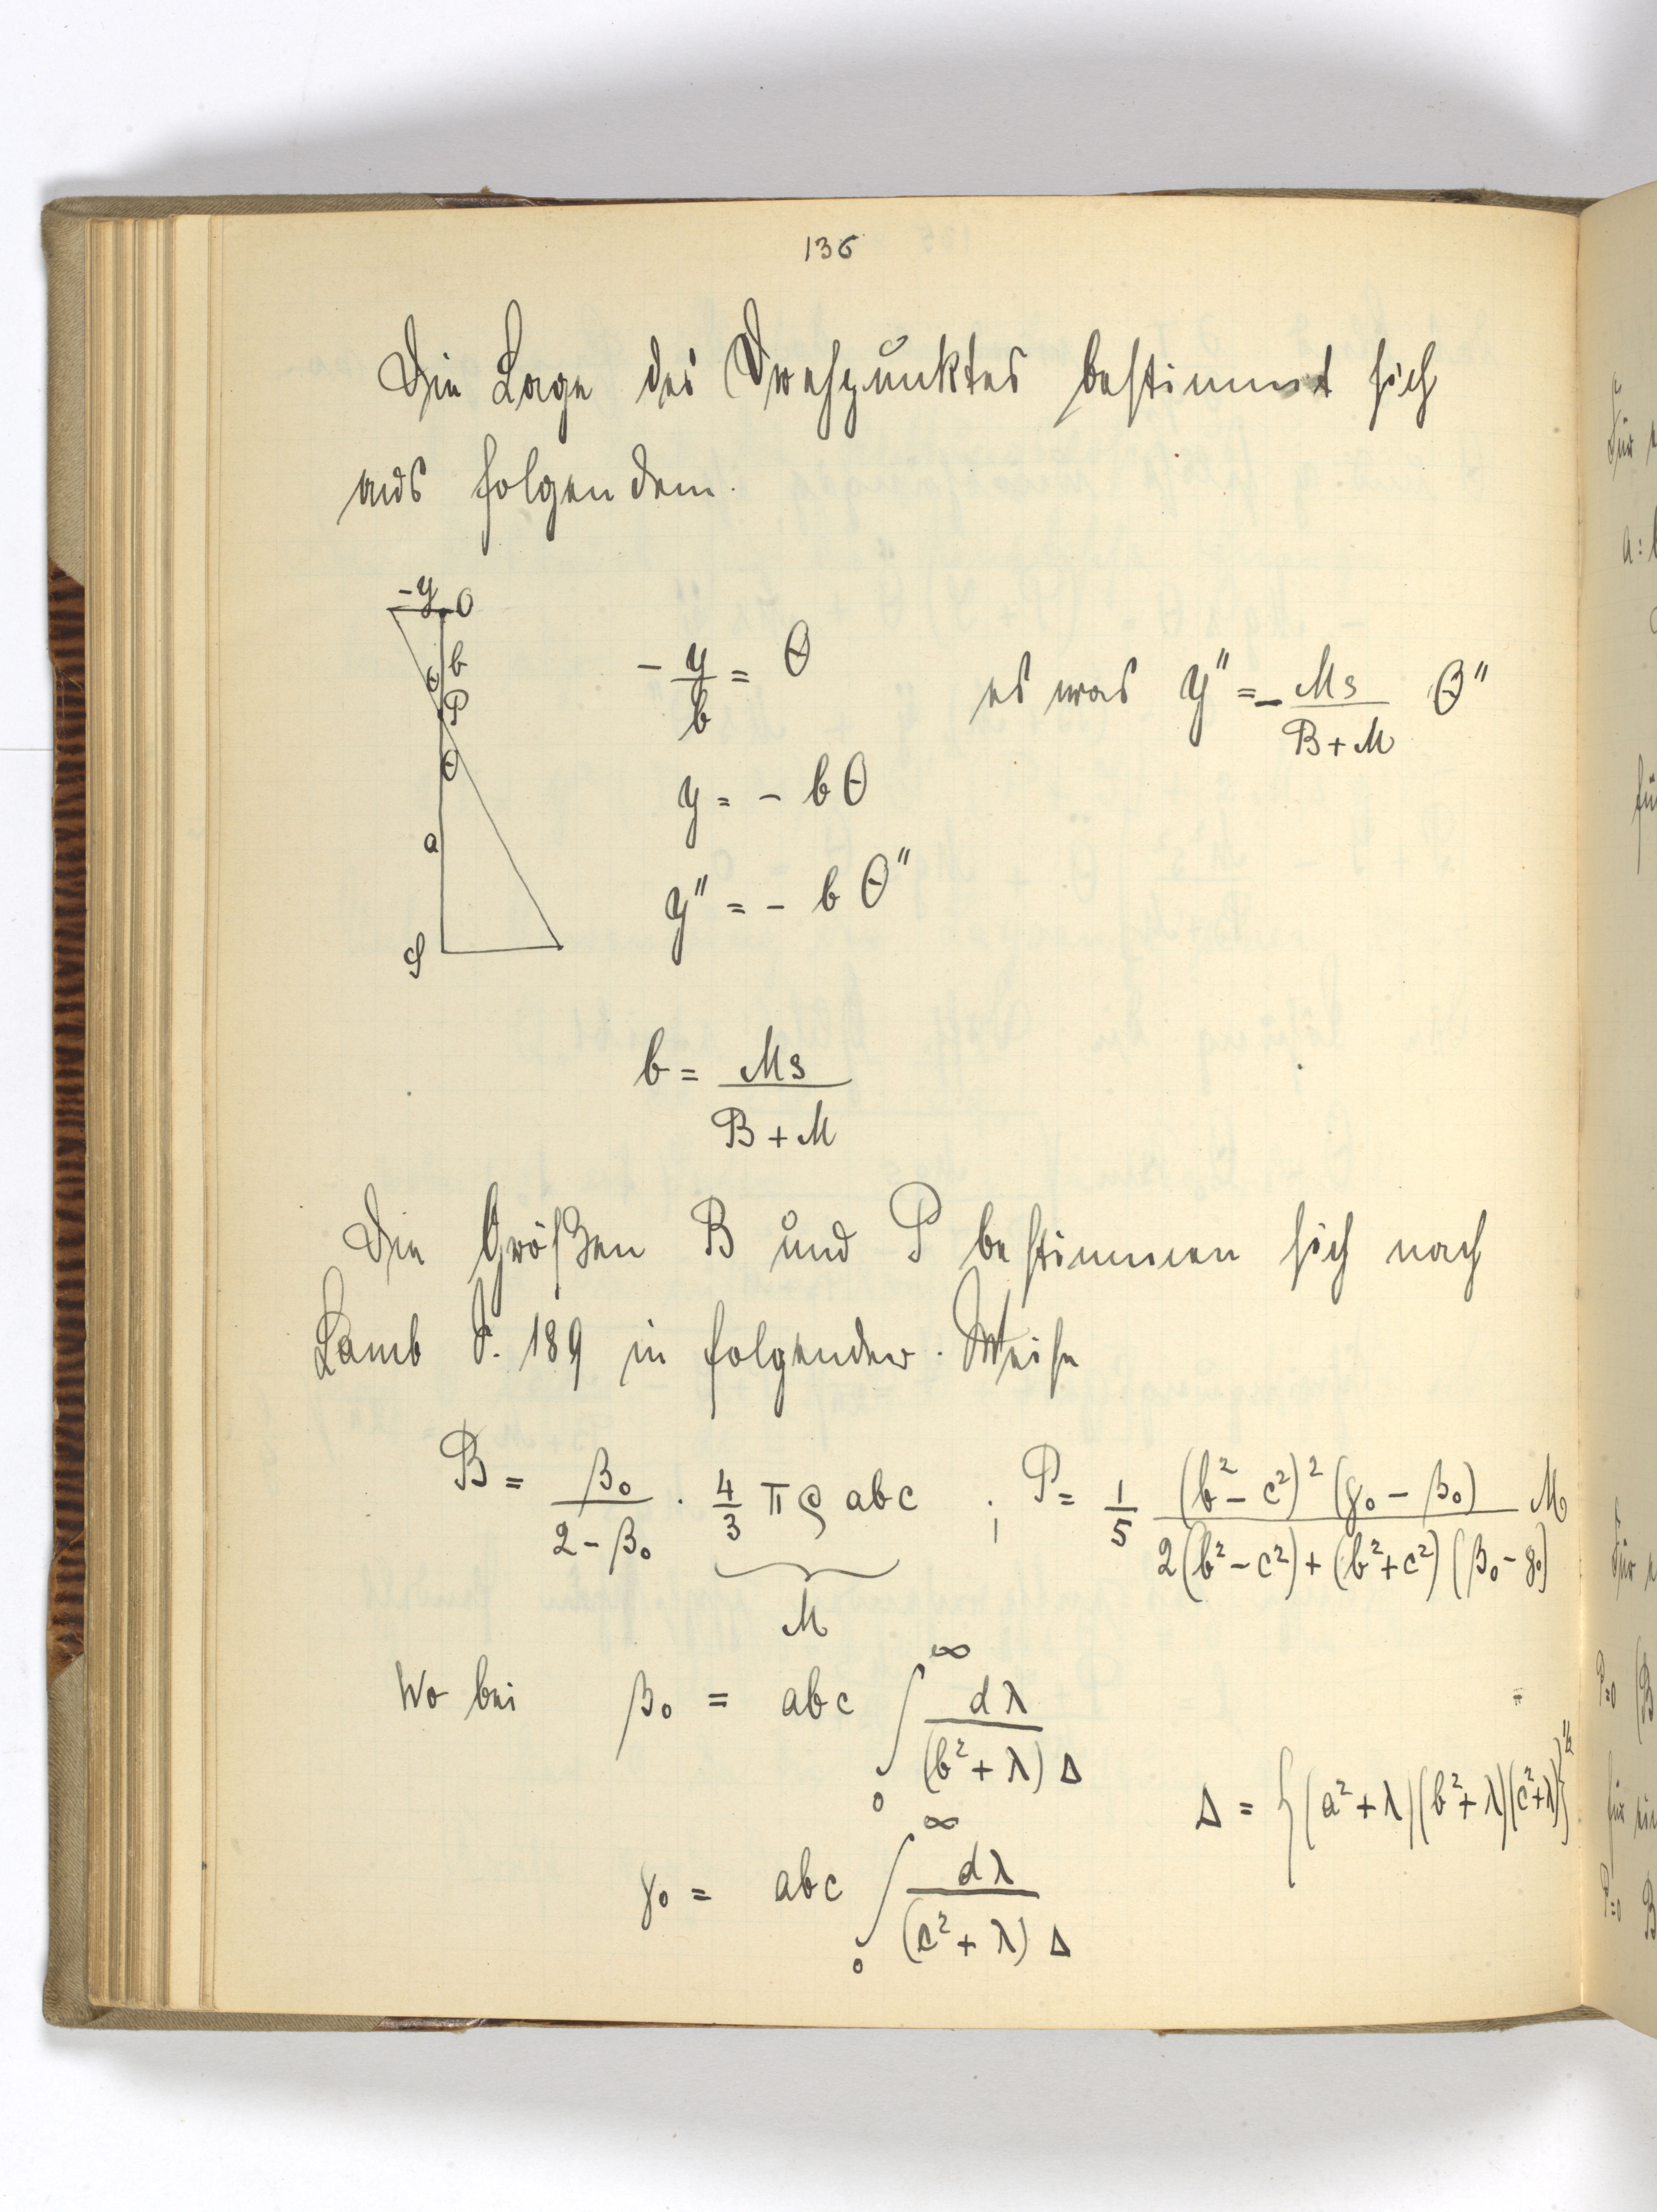 136
Die Lage des Drehpunktes bestimmt sich
aus folgendem.
-y O
b
θ
P
θ
a
S
- y/b = θ es war y'' = - Ms/(B+M) θ''
y = - bθ
y'' = - b θ''
b = Ms/(B+M)
Die Größen B und P bestimmen sich nach
Lamb S. 189 in folgender Weise
B = β₀/(2-β₀) · 4/3 π ρ abc ; P = 1/5 (b²-c²)² (γ₀-β₀)/(2(b²-c²)+(b²+c²)(β₀-γ₀)) M
M
Wobei β₀ = abc ∫₀^∞ dλ/((b²+λ) Δ)
Δ = {(a²+λ)(b²+λ)(c²+λ)}^½
γ₀ = abc ∫₀^∞ dλ/((c²+λ) Δ)